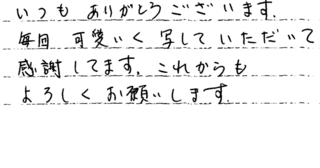 いつも ありがとうございます.
毎回 可愛いく 写して いただいて
感謝してます. これからも
よろしく お願いします.